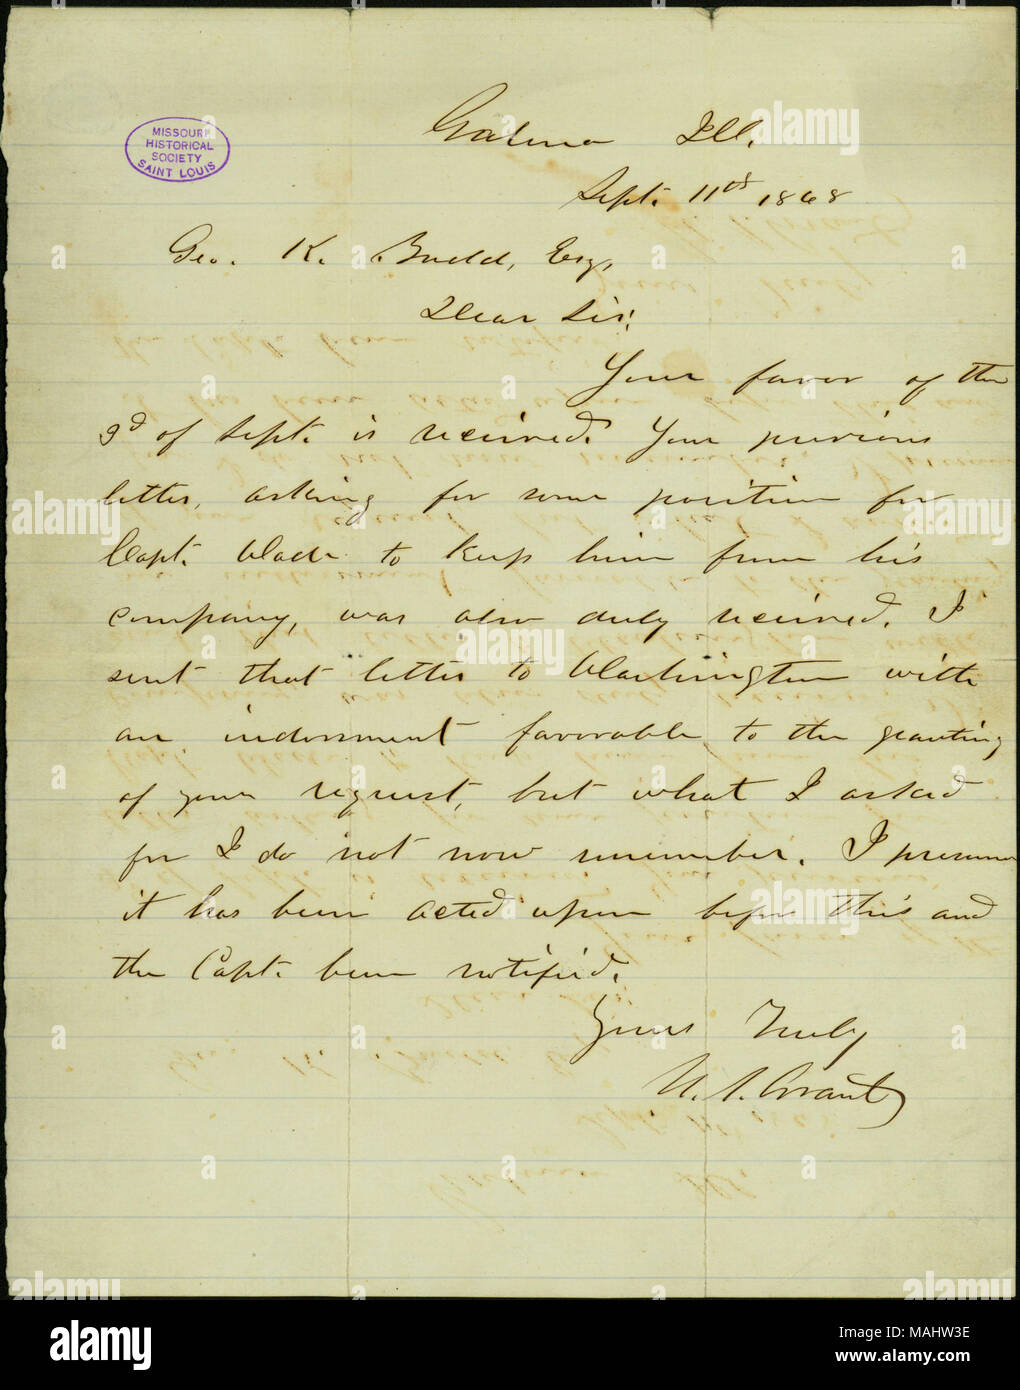 MISSOURI
HISTORICAL
SOCIETY
SAINT LOUIS
Galena Ill.
Sept. 11th 1868
Geo. K. Budd, Esq,
Dear Sir;
Your favor of the
3d of Sept. is received. Your previous
letter, asking for some position for
Capt. to keep him from his
company, was also duly received. I
sent that letter to Washington with
an indorsement favorable to the granting
of your request, but what I asked
for I do not now remember. I presume
it has been acted upon before this and
the Capt. been notified.
Yours Truly
U. S. Grant
alamy
alamy
alamy
Image ID: MAHW3E
www.alamy.com